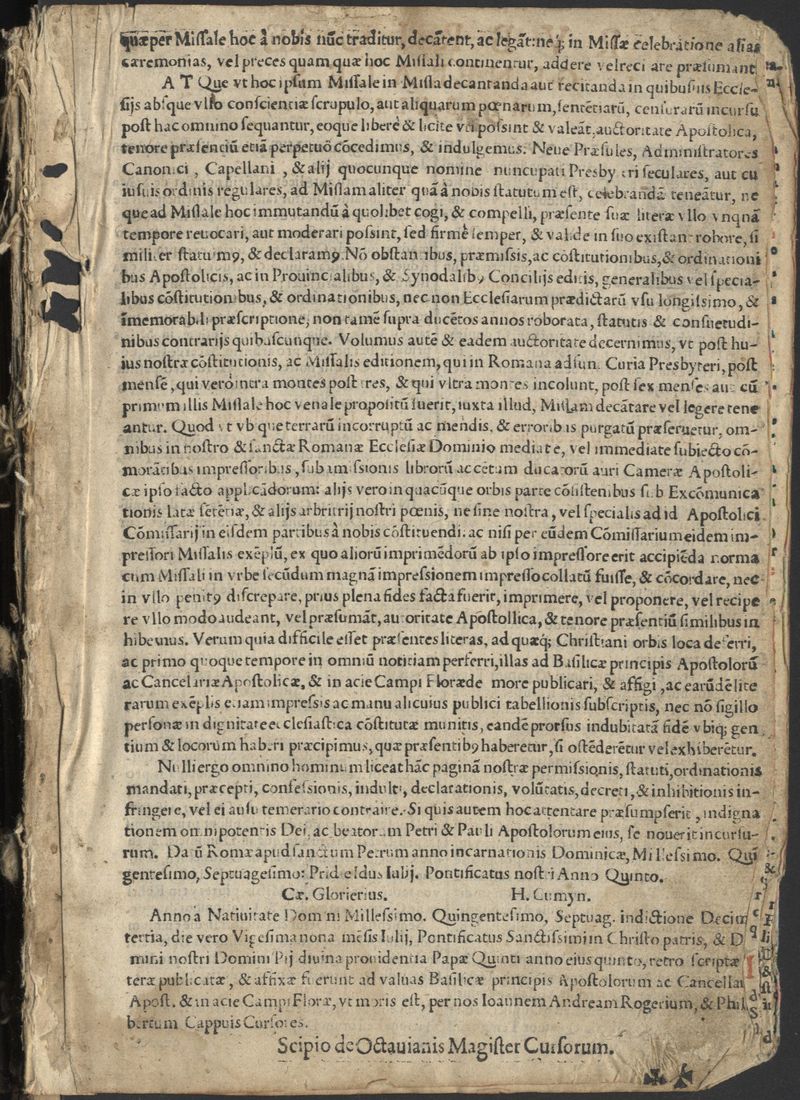 quæ per Missale hoc à nobis nũc traditur, decãtent, ac legãt: neq́; in Missæ celebratione alias
cæremonias, vel preces quam quæ hoc Missali continentur, addere vel recitare præsumant
A T Que vt hoc ipsum Missale in Missa decantanda aut recitanda in quibusuis Eccle-
sijs absque vllo conscientiæ scrupulo, aut aliquarum pœnarum, sentẽtiarũ, censurarũ incursu
post hac omnino sequantur, eoque liberè & licitè vti possint & valeãt, auctoritate Apostolica,
tenore præsentiũ etiã perpetuò cõcedimus, & indulgemus: Neue Præsules, Administratores
Canonici, Capellani, & alij quocunque nomine nuncupati Presbyteri seculares, aut cu
iusuis ordinis regulares, ad Missam aliter quã à nobis statutum est, celebrandã teneãtur, ne
que ad Missale hoc immutandũ à quolibet cogi, & compelli, præsente suæ literæ vllo vnquã
tempore reuocari, aut moderari possint, sed firmè semper, & valide in suo existant robore, si
militer statumꝰ, & declaramꝰ. Nõ obstantibus, præmissis, ac cõstitutionibus, & ordinationi
bus Apostolicis, ac in Prouincialibus, & Synodalibꝰ Concilijs editis, generalibus vel specia-
libus cõstitutionibus, & ordinationibus, nec non Ecclesiarum prædictarũ vsu longissimo, &
ĩmemorabili præscriptione, non tamẽ supra ducẽtos annos roborata, statutis & consuetudi-
nibus contrarijs quibuscunque. Volumus autẽ & eadem auctoritate decernimus, vt post hu-
ius nostræ cõstitutionis, ac Missalis editionem, qui in Romana adsunt Curia Presbyteri, post
mensẽ, qui verò intra montes post tres, & qui vltra montes incolunt, post sex menses aut cũ
primum illis Missale hoc venale propositũ fuerit, iuxta illud, Missam decãtare vel legere tene
antur. Quod vt vbique terrarũ incorruptũ ac mendis, & erroribus purgatũ præseruetur, om-
nibus in nostro & sanctæ Romanæ Ecclesiæ Dominio mediate, vel immediate subiecto cõ-
morãtibus impressoribus, sub amissionis librorũ ac cẽtum ducatorũ auri Cameræ Apostoli-
cæ ipso facto applicãdorum: alijs vero in quacũque orbis parte cõsistẽtibus sub Excõmunica
tionis latæ sẽtẽtiæ, & alijs arbitrij nostri pœnis, ne sine nostra, vel specialis ad id Apostolici
Cõmissarij in eisdem partibus à nobis cõstituendi. ac nisi per eũdem Cõmissarium eidem im-
pressori Missalis exẽplũ, ex quo aliorũ imprimẽdorũ ab ipso impressore erit accipiẽda norma
cum Missali in vrbe secũdum magnã impressionem impresso collatũ fuisse, & cõcordare, nec
in vllo penitꝰ discrepare, prius plena fides facta fuerit, imprimere, vel proponere, vel recipe
re vllo modo audeant, vel præsumãt, autoritate Apostollica, & tenore præsentiũ similibus in
hibemus. Verum quia difficile esset præsentes literas, ad quæq; Christiani orbis loca deferri,
ac primo quoque tempore in omniũ notitiam perferri, illas ad Basilicæ principis Apostolorũ
ac Cancelariæ Apostolicæ, & in acie Campi Floræ de more publicari, & affigi, ac earũdẽ lite
rarum exẽplis etiam impressis ac manu alicuius publici tabellionis subscriptis, nec nõ sigillo
personæ in dignitate ecclesiastica cõstitutæ munitis, eandẽ prorsus indubitatã fidẽ vbiq; gen
tium & locorum haberi præcipimus, quæ præsentibꝰ haberetur, si ostẽderẽtur vel exhiberẽtur.
Nulli ergo omnino hominum liceat hãc paginã nostræ permissionis, statuti, ordinationis
mandati, præcepti, confessionis, indulti, declarationis, volũtatis, decreti, & inhibitionis in-
fringere, vel ei ausu temerario contraire. Si quis autem hoc attentare præsumpserit, indigna
tionem omnipotentis Dei, ac beatorum Petri & Pauli Apostolorum eius, se nouerit incursu-
rum. Datũ Romæ apud sanctum Petrum anno incarnationis Dominicæ, Millesimo. Quĩ
gentesimo, Septuagesimo: Prid eidus Iulij. Pontificatus nostri Anno Quinto.
Cæ. Glorierius. H. Cumyn.
Anno a Natiuitate Domini Millesimo. Quingentesimo, Septuag. indictione Decim
tertia, die vero Vigesima nona mẽsis Iulij, Pontificatus Sanctissimi in Christo patris, & D
mini nostri Domini Pij diuina prouidentia Papæ Quinti anno eius quinto, retro scriptæ
teræ publicatæ, & affixæ fuerunt ad valuas Basilicæ principis Apostolorum ac Cancellar
Apost. & in acie Campi Floræ, vt moris est, per nos Ioannem Andream Rogerium, & Phil
bertum Cappuis Cursores.
Scipio de Octauianis Magister Cursorum.